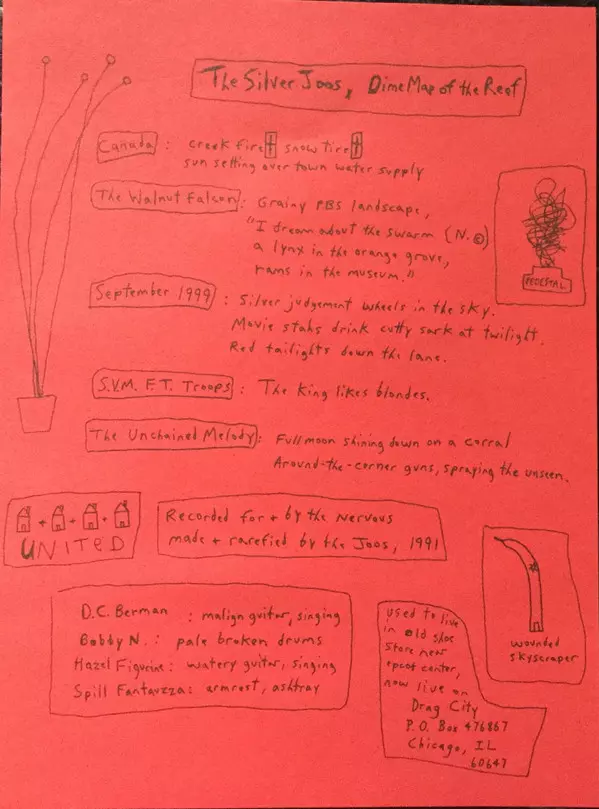 The Silver Joos, Dime Map of the Reef
Canada : creek fire snow tire
sun setting over town water supply
The Walnut Falcon : Grainy PBS landscape,
"I dream about the swarm (N.©)
a lynx in the orange grove,
rams in the museum."
PEDESTAL
September 1999 : Silver judgement wheels in the sky.
Movie stahs drink cutty sark at twilight.
Red tailights down the lane.
S.V.M. F.T. Troops : The King likes blondes.
The Unchained Melody : Full moon shining down on a corral
Around-the-corner guns, spraying the unseen.
+ + +
UNITED
Recorded for + by the Nervous
made + rarefied by the Joos, 1991
wounded
skyscraper
D.C. Berman : malign guitar, singing
Bobby N. : pale broken drums
Hazel Figurine : watery guitar, singing
Spill Fantauzza : armrest, ashtray
used to live
in old shoe
store near
epcot center,
now live on
Drag City
P.O. Box 476867
Chicago, IL
60647